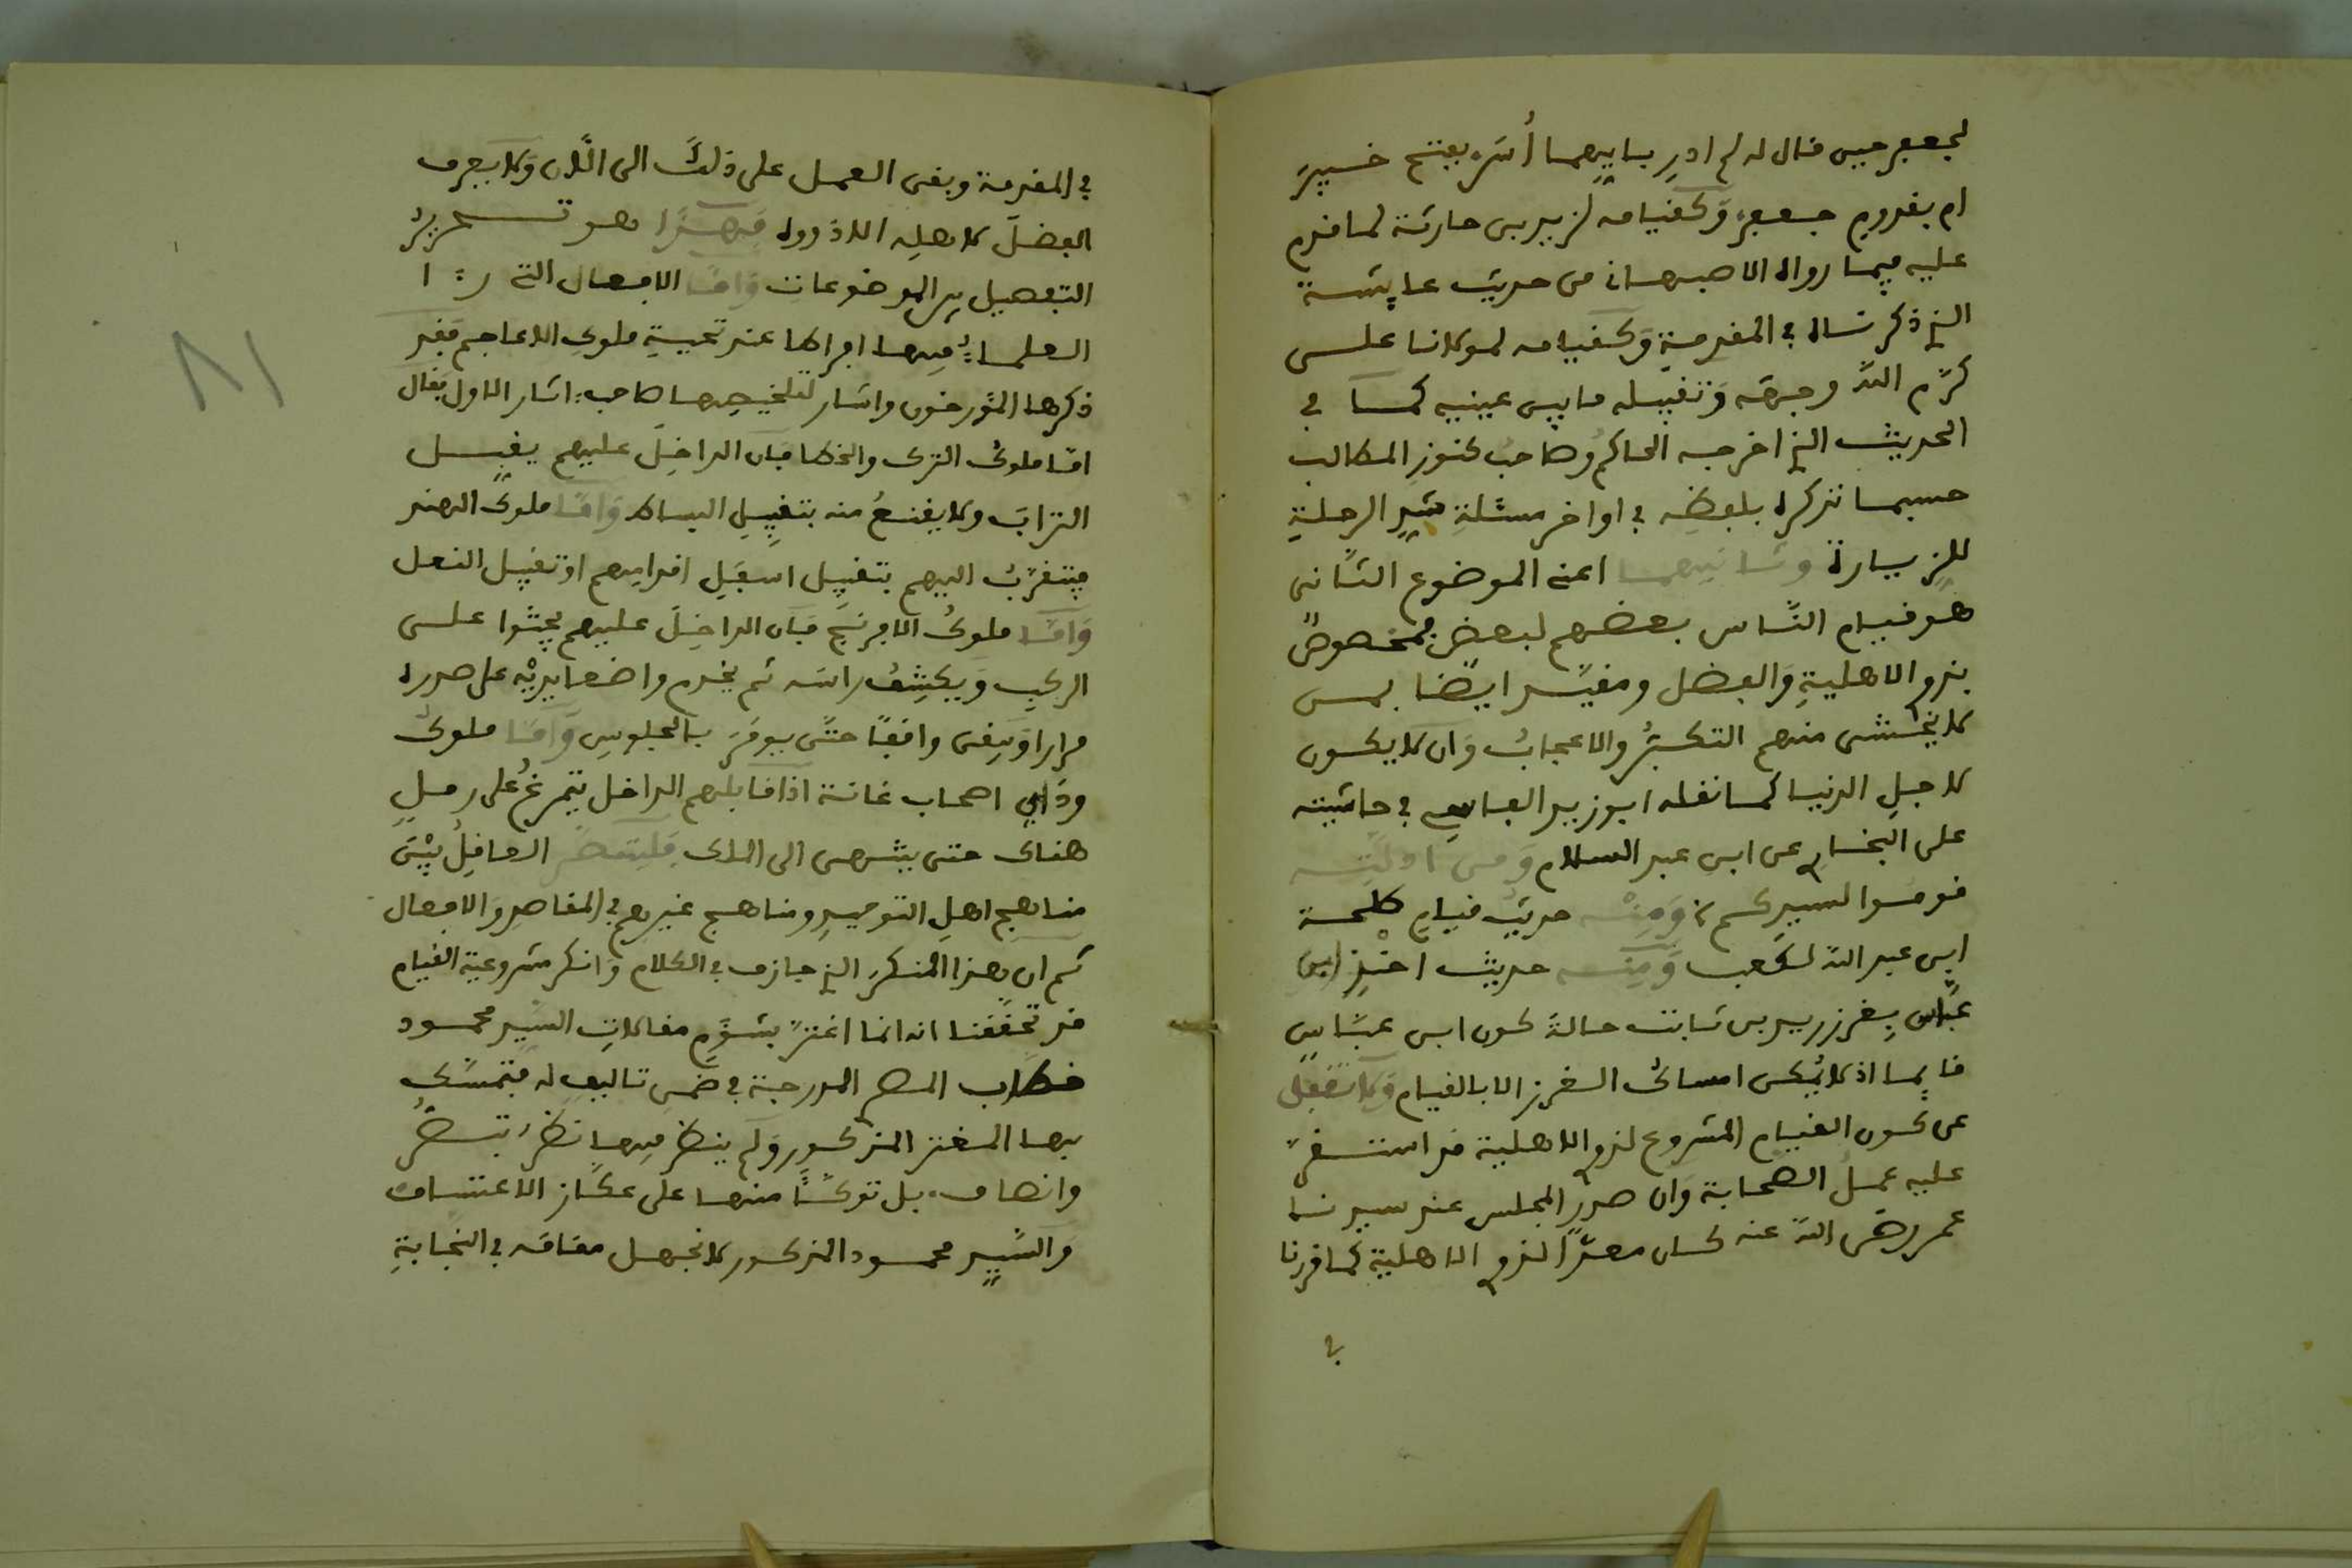 لجعفر حين قال له لم ادر بايهما أُسَرّ بفتح خيبر
ام بقدوم جعفر وَكقيامه لزيد بن حارثة لما قدم
عليه فيما رواه الاصبهاني من حديث عايشة
الذي ذكرناه في المقدمة وَكقيامه لمولانا على
كرّم الله وجهه وَتقبيله ما بين عينيه كما في
الحديث الذي اخرجه الحاكم وصاحب كنوز المطالب
حسبما نذكره بلفظه في اواخر مسئلة شدِ الرحلة
للزيارة وثانيهما اعني الموضوع الثانى
هو قيام النّاس بعضهم لبعض فمخصوصٌ
بذوي الاهلية وَالفضل ومقيّد ايضا بمن
لا يخشى منهم التكبّرُ والاعجابُ وَان لا يكون
لاجلِ الدنيا كما نقله ابو زيد الفاسي في حاشيته
على البخاري عن ابن عبد السلام وَمن ادلّته
قوموا لسيدكم وَمِنْه حديث قيام طلحة
ابن عبد الله لكعب وَمنه حديث اخذ ابن
عبّاس بِغرز زيد بن ثابت حالةَ كون ابن عبّاسٍ
قايما اذ لا يُمكن امساك الغرز الا بالقيام وَلا تغفل
عن كون القيام المشروع لذوي الاهلية قد استقرّ
عليه عملُ الصحابة وَان صدر المجلس عند سيدنا
عمر رضى الله عنه كان معدّا لذوي الاهلية كما قررنا
في
في المقدمة وبقى العمل على ذلك الى الٔان وَلا يعرف
الفضلَ لاهلِه الا ذووه فهذا هو تحريرُ
التفصيل بين الموضوعات وَامّا الافعال التي
العلماءُ فيها افراطا عند تحيةِ ملوك الاعاجم فقد
ذكرها المؤرخون واشار لتلخيصها صاحب اثار الاول فقال
امّا ملوك الترك والخطا فان الداخلَ عليهم يقبل
الترابَ ولا يقنعُ منه بتقبيلِ البساط وَامّا ملوك الهند
فيتقرّبُ اليهم بتقبيل اسفلِ اقدامهم او تقبيل النعل
وَامّا ملوك الافرنج فان الداخلَ عليهم يجثوا على
الركب وَيكشِفُ راسَه ثم يخدم واضعا يديْه على صدره
مرارا وَيبقى واقفًا حتّى يومَر بالجلوسِ وَامّا ملوك
وَدّاي اصحاب غانة اذا قابلهم الداخل يتمرغ على رمل
هناك حتى ينتهى الى الملك فليتصفح العاقِلُ بيْن
مناهج اهلِ التوحيدِ ومناهج غيرهم في المقاصدِ وَالافعال
ثم ان هذا المنكرَ الذي جازف في الكلام وَانكر مشروعية القيام
قد تحقّقنا انه انما اغترّ بشؤمِ مقالاتِ السّيد محمود
خطاب المصري المدرجة في ضمن تاليف له فتمسّك
بها المغتر المذكور وَلم ينظر فيها نظرَ تبصّرُ
وانصاف، بل توكّأ منها على عكّاز الاعتساف
وَالسّيد محمود المذكور لا نجهل مقامَه في النجابةِ